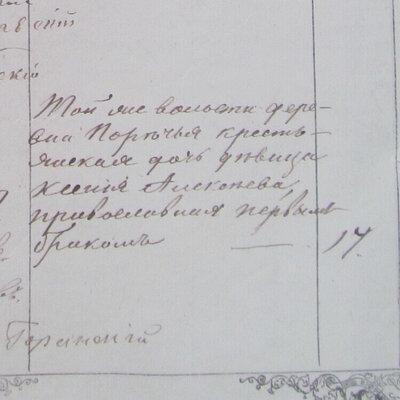 скій
Той же волости дере-
вни Поречья кресть-
янская дочь девица
Ксенія Алексеева,
православная первымъ
бракомъ — 17.